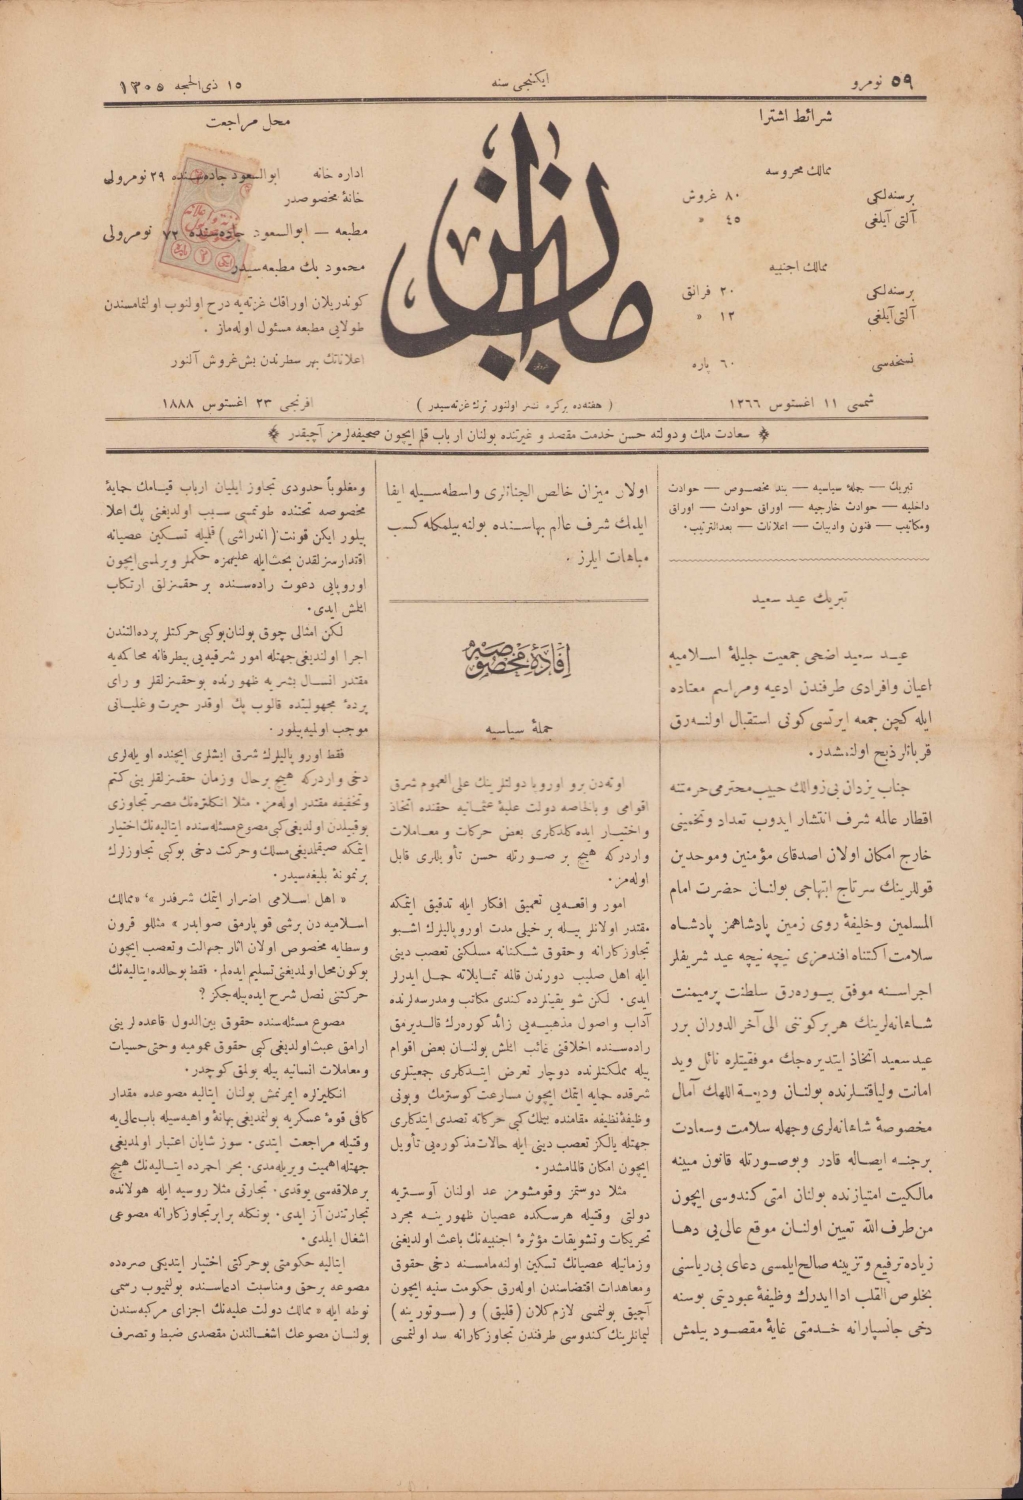 نومرو ٥٩
ایكنجی سنه
١٥ ذی الحجه ١٣٠٥
شرائط اشترا
ممالك محروسه
برسنه‌لكی ٨٠ غروش
آلتی آیلغی ٤٥ »
ممالك اجنبیه
برسنه‌لكی ٢٠ فرانق
آلتی آیلغی ١٢ »
نسخه‌سی ٦٠ پاره
شمسی ١١ اغستوس ١٢٦٦
میزان
( هفته‌ده بركره نشر اولنور ترك غزته‌سیدر )
محل مراجعت
اداره خانه ابوالسعود جاده‌سنده ٢٩ نومرولی
خانهٔ مخصوصدر
مطبعه — ابوالسعود جاده‌سنده ٧٢ نومرولی
محمود بك مطبعه‌سیدر
كوندریلان اوراقك غزته‌یه درج اولنوب اولنمامسندن
طولایی مطبعه مسئول اوله‌ماز .
اعلاناتك بهر سطرندن بش غروش آلنور
افرنجی ٢٣ اغستوس ١٨٨٨
سعادت ملك ودولته حسن خدمت مقصد و غیرتنده بولنان ارباب قلم ایچون صحیفه‌لرمز آچیقدر
تبریك — جملهٔ سیاسیه — بند مخصوص — حوادث
داخلیه — حوادث خارجیه — اوراق حوادث — اوراق
ومكاتیب — فنون وادبیات — اعلانات — بعدالترتیب.
تبریك عید سعید
عید سعید اضحی جمعیت جلیلهٔ اسلامیه
اعیان وافرادی طرفندن ادعیه ومراسم معتاده
ایله كچن جمعه ایرتسی كونی استقبال اولنه‌رق
قربانلر ذبح اولنمشدر.
جناب یزدان بی زوالك حبیب محترمی حرمتنه
اقطار عالمه شرف انتشار ایدوب تعداد وتخمینی
خارج امكان اولان اصدقای مؤمنین وموحدین
قوللرینك سرتاج ابتهاجی بولنان حضرت امام
المسلمین وخلیفهٔ روی زمین پادشاهمز پادشاه
سلامت اكتناه افندمزی نیچه نیچه عید شریفلر
اجراسنه موفق بیوره‌رق سلطنت پرمیمنت
شاهانه‌لرینك هر بر كوننی الی آخر الدوران برر
عید سعید اتخاذ ایتدیره‌جك موفقیتلره نائل وید
امانت ولیاقتلرنده بولنان ودیعة اللهك آمال
مخصوصهٔ شاهانه‌لری وجهله سلامت وسعادت
برجنه ایصاله قادر وبوصورتله قانون مبینه
مالكیت امتیازنده بولنان امتی كندوسی ایچون
من طرف الله تعیین اولنان موقع عالی‌یی دها
زیاده ترفیع و تزیینه صالح ایلمسی دعای بی ریاسنی
بخلوص القلب ادا ایدرك وظیفهٔ عبودیتی بوسنه
دخی جانسپارانه خدمتی غایهٔ مقصود بیلمش
اولان میزان خالص الجنانلری واسطه‌سیله ایفا
ایله‌مك شرف عالم بهاسنده بولنه بیلمكله كسب
مباهات ایلرز .
افادهٔ مخصوصه
جملهٔ سیاسیه
اوته‌دن برو اوروپا دولتلرینك علی العموم شرق
اقوامی وبالخاصه دولت علیهٔ عثمانیه حقنده اتخاذ
واختیار ایده‌كلدكاری بعض حركات ومعاملات
واردركه هیچ بر صورتله حسن تأویللری قابل
اوله‌مز.
امور واقعه‌یی تعمیق افكار ایله تدقیق ایتمكه
مقتدر اولانلر بیله بر خیلی مدت اوروپالیلرك اشبو
تجاوزكارانه وحقوق شكنانه مسلكنی تعصب دینی
ایله اهل صلیب دورندن قالمه تمایلاته حمل ایدرلر
ایدی. لكن شو یقینلرده كندی مكاتب ومدرسه‌لرنده
آداب واصول مذهبیه‌یی زائد كوره‌رك قالدیرمق
راده‌سنده اخلاقنی غائب ایتمش بولنان بعض اقوام
بیله مملكتلرنده دوچار تعرض ایتدكلری جمعیتلری
شرقده حمایه ایتمك ایچون مسارعت كوسترمك وبونی
وظیفهٔ نظیفه مقامنده بیلمك كبی حركاته تصدی ایتدكلری
جهتله یالكز تعصب دینی ایله حالات مذكوره‌یی تأویل
ایچون امكان قالمامشدر.
مثلا دوستمز وقومشومز عد اولنان آوستریه
دولتی وقتیله هرسكده عصیان ظهورینه مجرد
تحریكات وتشویقات مؤثرهٔ اجنبیه‌نك باعث اولدیغنی
وزمانیله عصیانك تسكین اولنه‌مامسنه دخی حقوق
ومعاهدات اقتضاسندن اوله‌رق حكومت سنیه ایچون
آچیق بولنمسی لازم كلان (قلیق) و (سوتورینه)
لیمانلرینك كندوسی طرفندن تجاوزكارانه سد اولنمسی
ومغلوباً حدودی تجاوز ایلیان ارباب قیامك حمایهٔ
مخصوصه تحتنده طوتلمسی سبب اولدیغنی پك اعلا
بیلور ایكن قونت (اندراشی) قلمیله تسكین عصیانه
اقتدارسزلقدن بحث ایله علیهمزه حكملر ویرلمسی ایچون
اوروپایی دعوت راده‌سنده بر حقسزلق ارتكاب
ایتمش ایدی.
لكن امثالی چوق بولنان بوكبی حركتلر پرده آلتندن
اجرا اولندیغی جهتله امور شرقیه‌یی بیطرفانه محاكمه‌یه
مقتدر انسال بشریه ظهورنده بوحقسزلقلر ورای
پردهٔ مجهولیتده قالوب پك اوقدر حیرت وغلیانی
موجب اولمیه‌بیلور.
فقط اوروپالیلرك شرق ایشلری ایچنده اویله‌لری
دخی واردركه هیچ برحال وزمان حقسزلقلرینی كتم
وتخفیفه مقتدر اوله‌مز. مثلا انكلتره‌نك مصر تجاوزی
بوقبیلدن اولدیغی كبی مصوع مسئله‌سنده ایتالیه‌نك اختیار
ایتمكه صیقلمدیغی مسلك وحركت دخی بوكبی تجاوزلرك
بر نمونهٔ بلیغه‌سیدر.
« اهل اسلامی اضرار ایتمك شرفدر »، «ممالك
اسلامیه دن برشی قوپارمق صوابدر » مثللو قرون
وسطایه مخصوص اولان اثار جهالت وتعصب ایچون
بوكون محل اولمدیغنی تسلیم ایده‌لم. فقط بوحالده ایتالیه‌نك
حركتنی نصل شرح ایده بیله‌جكز ؟
مصوع مسئله‌سنده حقوق بین الدول قاعده‌لرینی
ارامق عبث اولدیغی كبی حقوق عمومیه وحتی حسیات
ومعاملات انسانیه بیله بولمق كوچدر.
انكلیزلره ایمرنمش بولنان ایتالیه مصوعده مقدار
كافی قوهٔ عسكریه بولنمدیغی بهانهٔ واهیه‌سیله باب عالی‌یه
وقتیله مراجعت ایتدی. سوز شایان اعتبار اولمدیغی
جهتله اهمیت ویریله‌مدی. بحر احمرده ایتالیه‌نك هیچ
بر علاقه‌سی یوقدی. تجارتی مثلا روسیه ایله هولانده
تجارتندن آز ایدی. بونكله برابر تجاوزكارانه مصوعی
اشغال ایلدی.
ایتالیه حكومتی بوحركتی اختیار ایتدیكی صره‌ده
مصوعه برحق ومناسبت ادعاسنده بولنمیوب رسمی
نوطه ایله « ممالك دولت علیه‌نك اجزای مركبه‌سندن
بولنان مصوعك اشغالندن مقصدی ضبط وتصرف